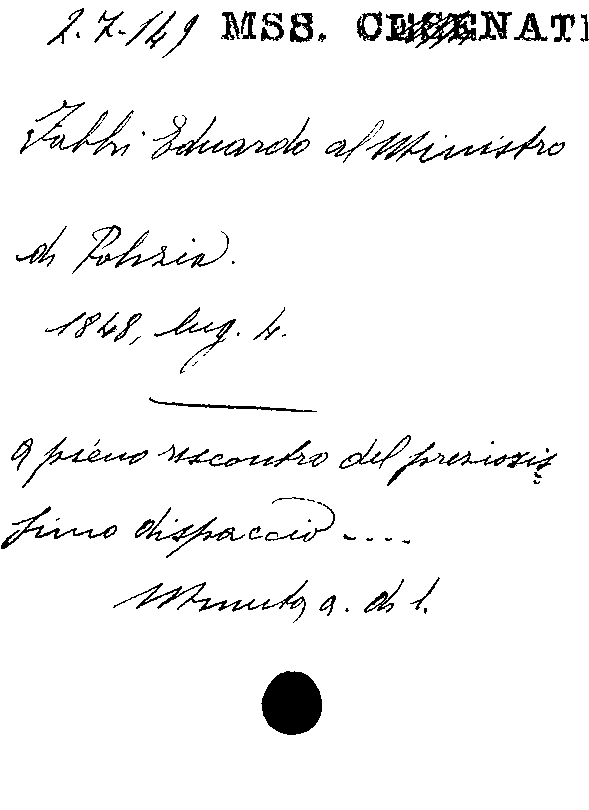 2.7.149 MSS. CESENATI
Fabbri Eduardo al Ministro
di Polizia.
1848, lug. 4.
A pieno riscontro del preziosis
simo dispaccio ....
Minuta a. di l.